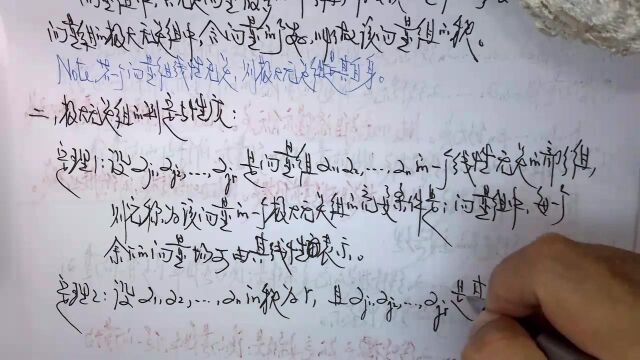 向量组的极大无关组中,含向量的个数,叫做该向量组的秩。
Note: 若一个向量组线性无关,则极大无关组是其自身。
二、极大无关组的判定与性质:
定理1:设 αj₁,αj₂,…,αjr 是向量组α₁,α₂,…,αn的一个线性无关的部分组,
则它称为该向量的一个极大无关组的充要条件是:向量组中,每一个
余下的向量均可由其线性表示。
定理2:设α₁,α₂,…,αn的秩为r,且αj₁,αj₂,…,αjr是